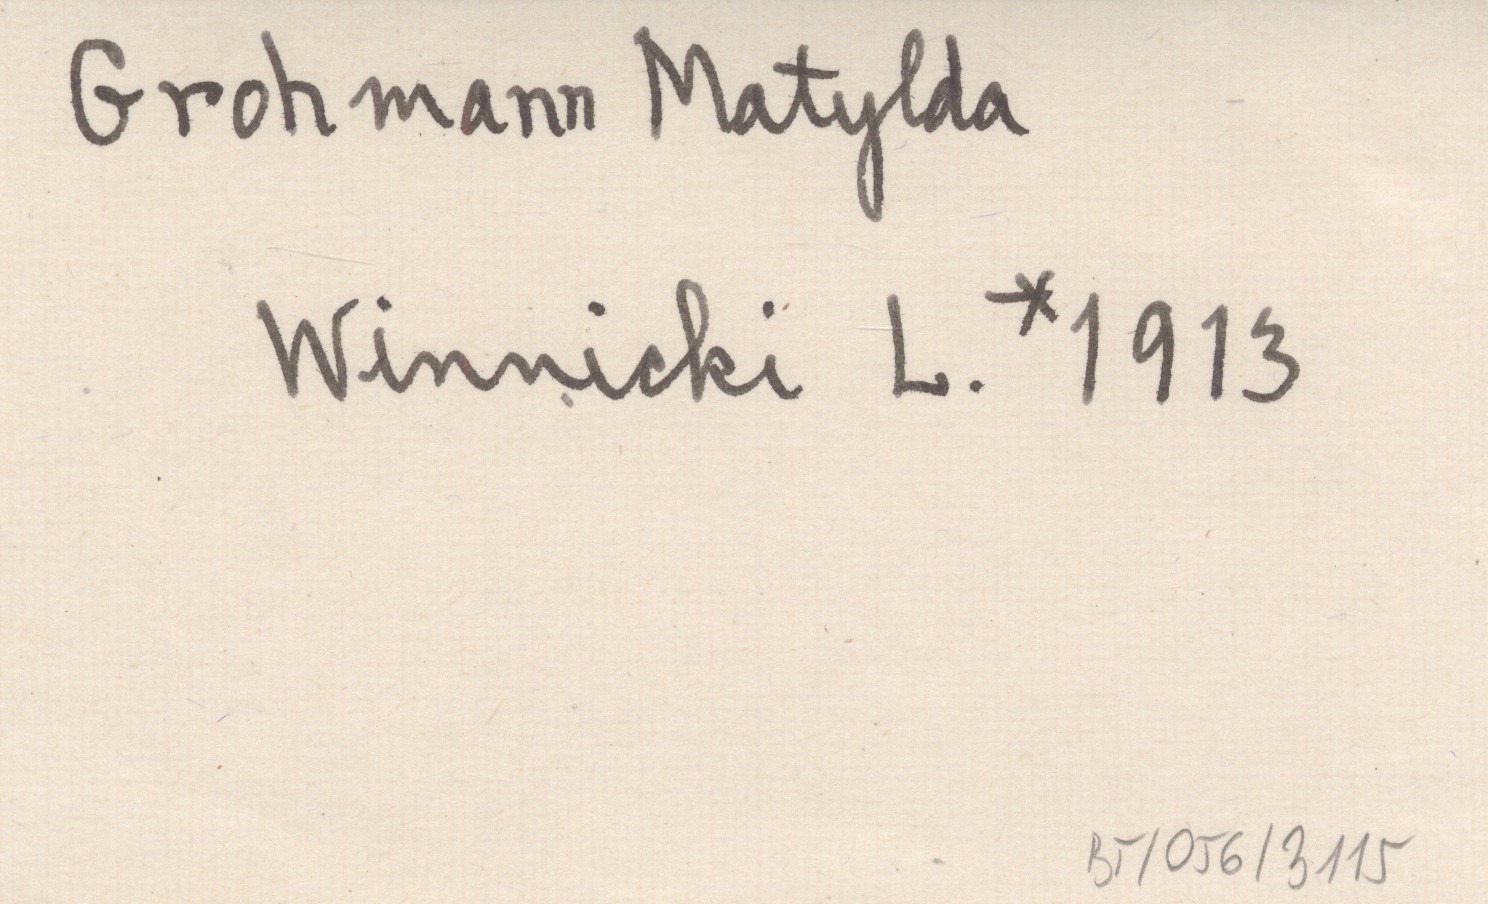 Grohmann Matylda
Winnicki L. *1913
BT/056/3115